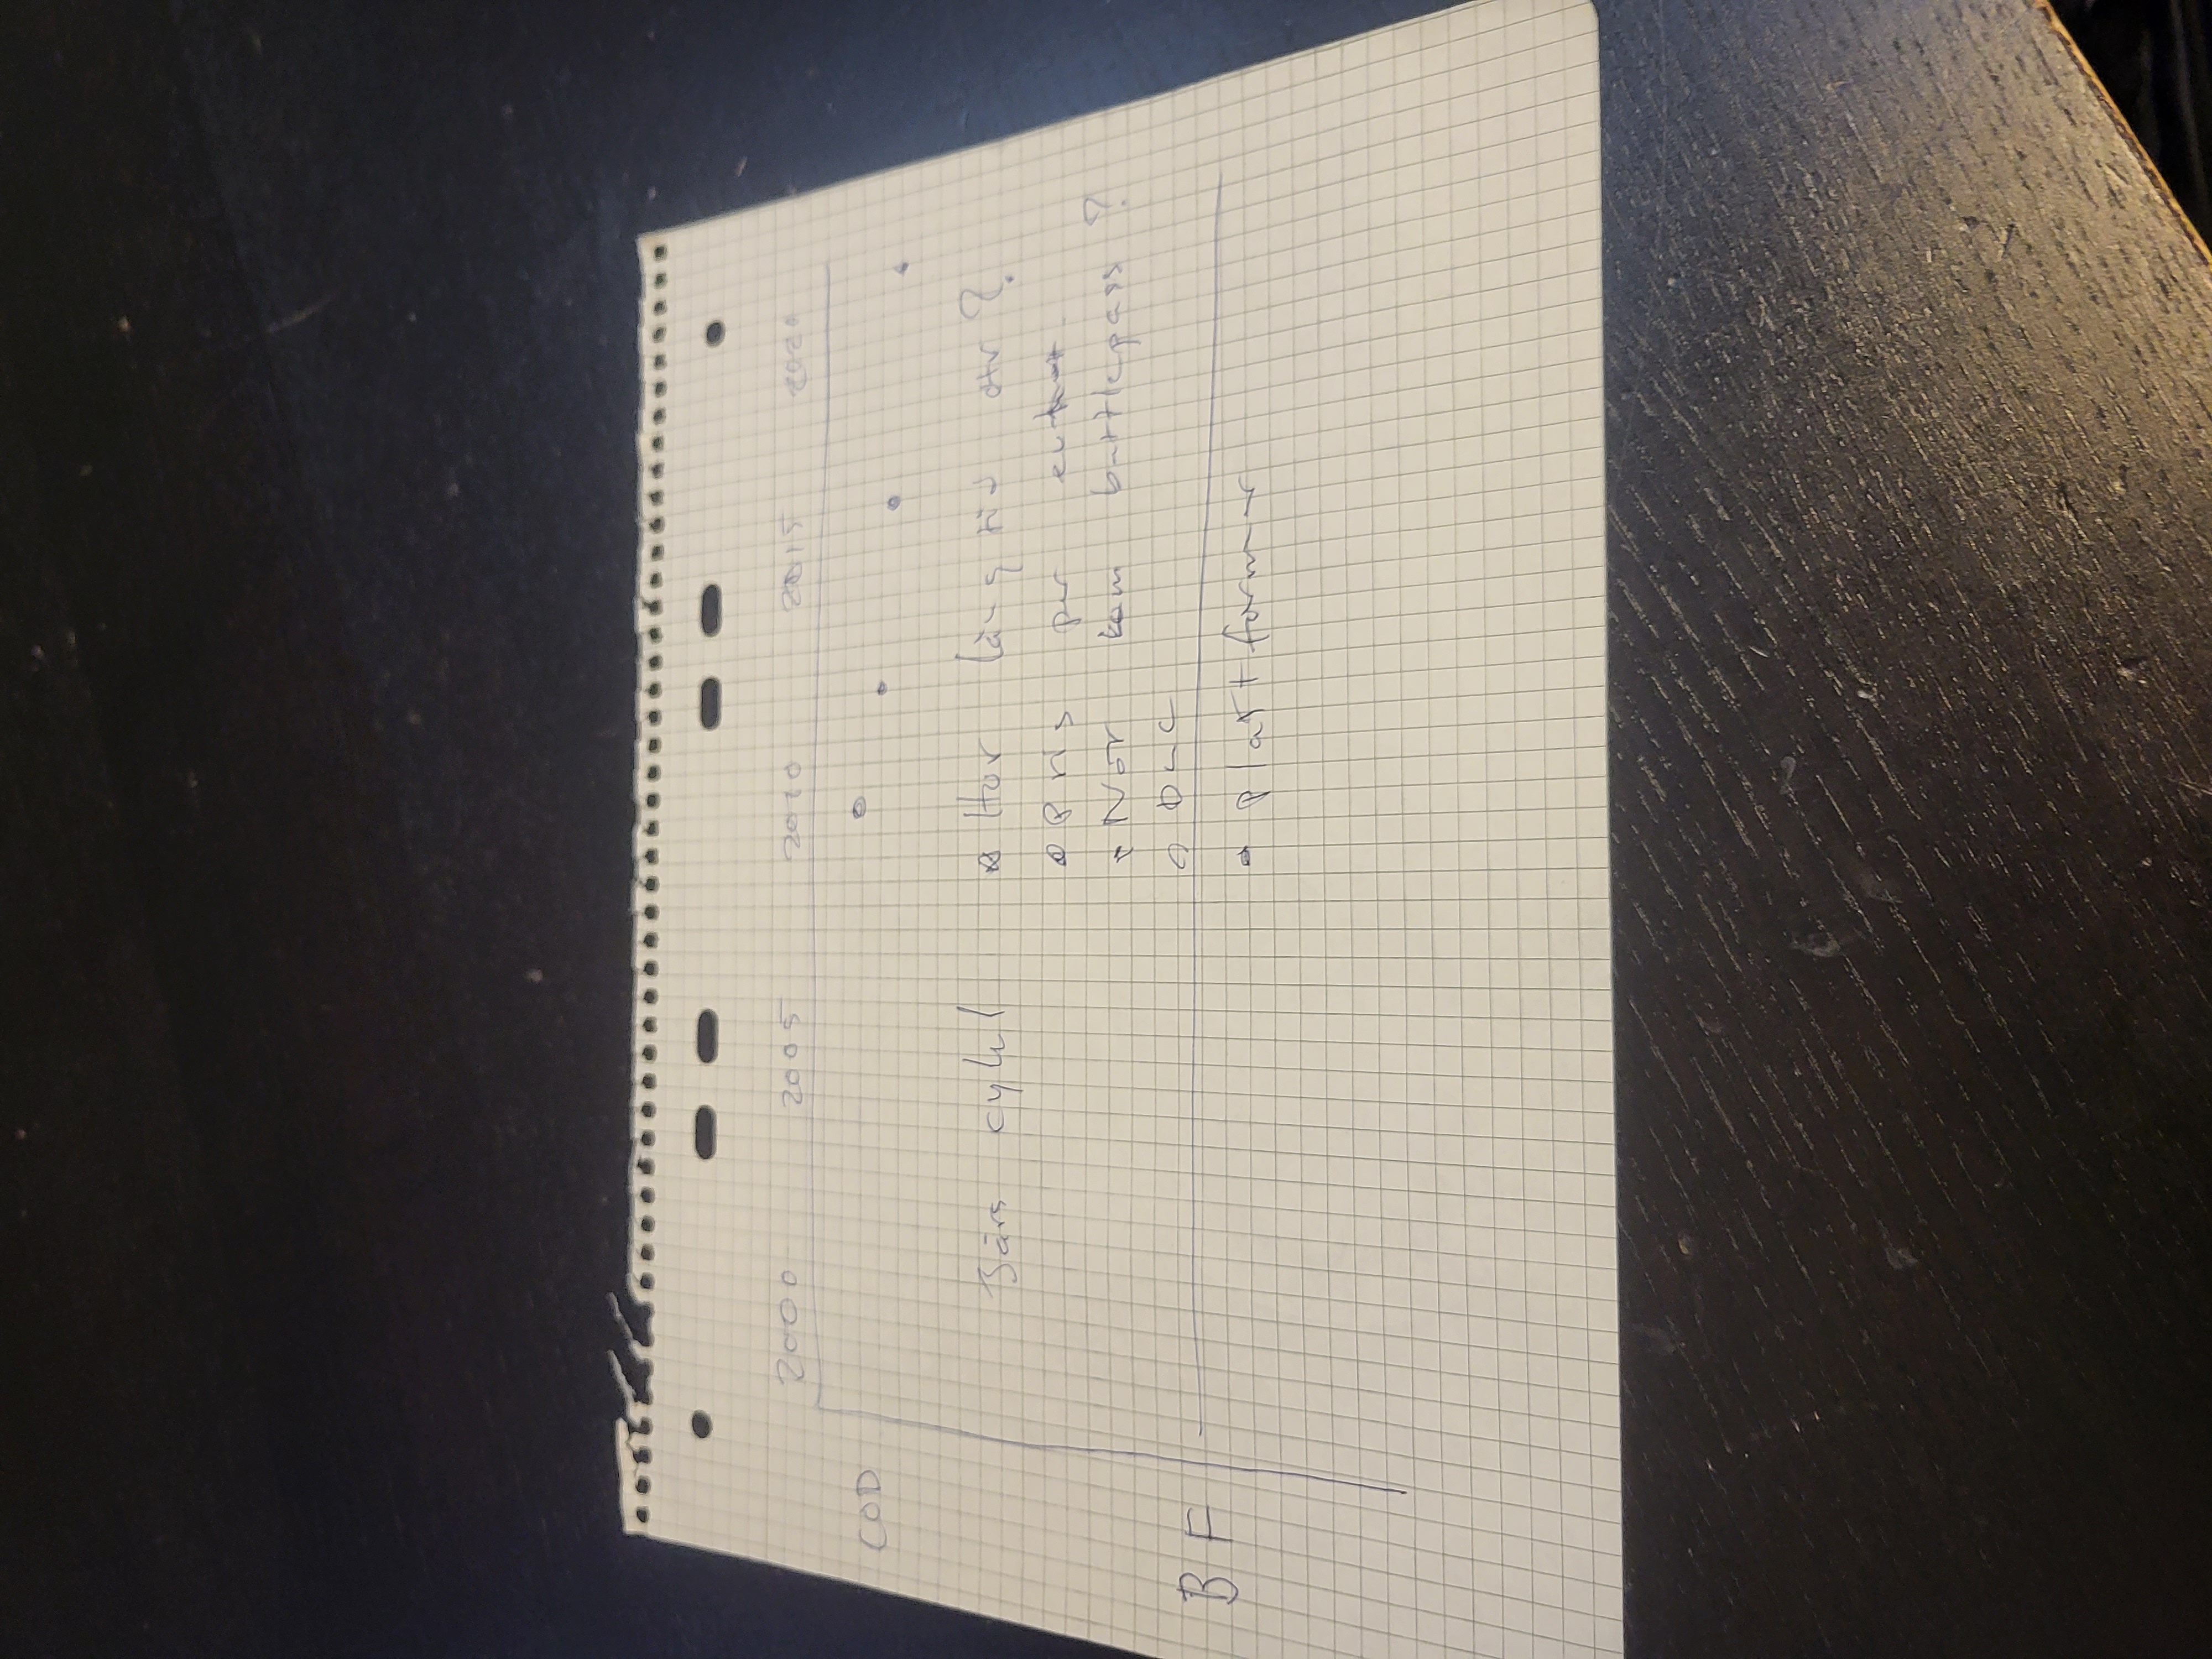 2000 2005 2010 2015 2020
COD
3års cykel
Hur lång tid
Pris per
När kom battlepass?
DLC
BF
Plattformar